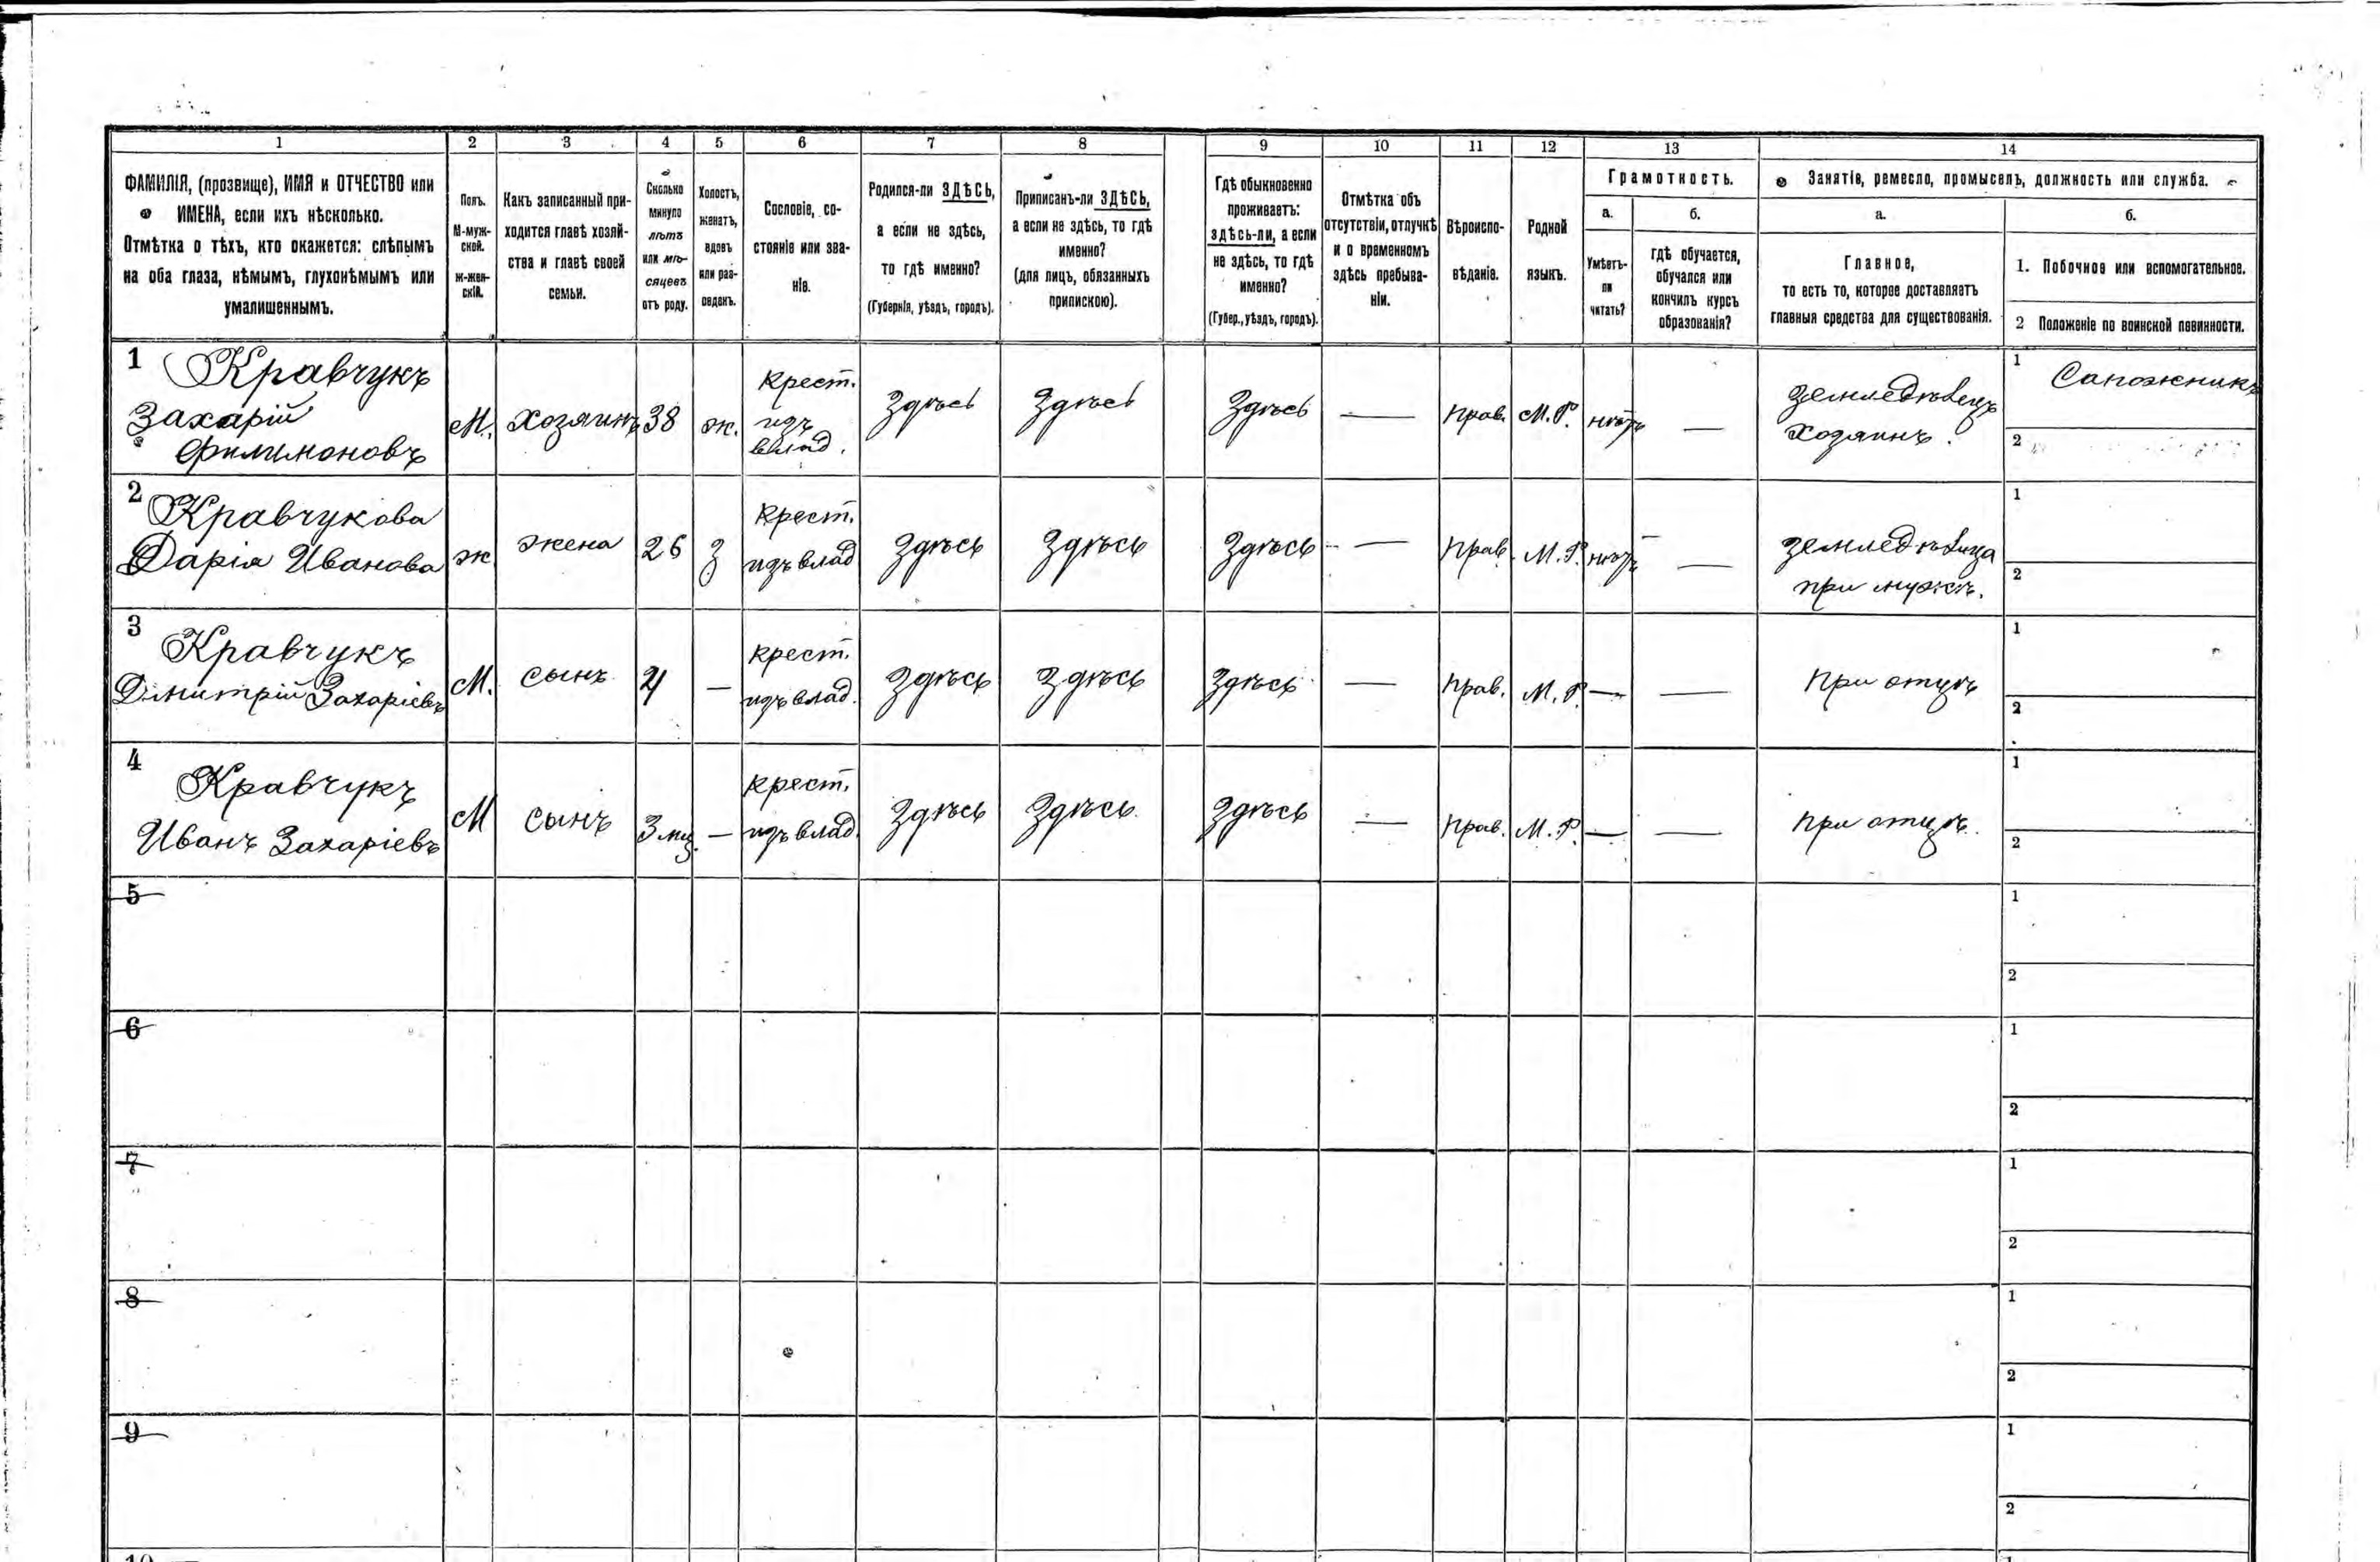 1 2 3 4 5 6 7 8 9 10 11 12 13 14
ФАМИЛІЯ, (прозвище), ИМЯ и ОТЧЕСТВО или
ИМЕНА, если ихъ нѣсколько.
Отмѣтка о тѣхъ, кто окажется: слѣпымъ
на оба глаза, нѣмымъ, глухонѣмымъ или
умалишеннымъ.
Полъ.
М-муж-
ской.
Ж-жен-
скій.
Какъ записанный при-
ходится главѣ хозяй-
ства и главѣ своей
семьи.
Сколько
минуло
лѣтъ
или мѣ-
сяцевъ
отъ роду.
Холостъ,
женатъ,
вдовъ
или раз-
веденъ.
Сословіе, со-
стояніе или зва-
ніе.
Родился-ли ЗДѢСЬ,
а если не здѣсь,
то гдѣ именно?
(Губернія, уѣздъ, городъ).
Приписанъ-ли ЗДѢСЬ,
а если не здѣсь, то гдѣ
именно?
(для лицъ, обязанныхъ
припискою).
Гдѣ обыкновенно
проживаетъ:
здѣсь-ли, а если
не здѣсь, то гдѣ
именно?
(Губер., уѣздъ, городъ).
Отмѣтка объ
отсутствіи, отлучкѣ
и о временномъ
здѣсь пребыва-
ніи.
Вѣроиспо-
вѣданіе.
Родной
языкъ.
Грамотность.
а.
Умѣетъ-
ли
читать?
б.
гдѣ обучается,
обучался или
кончилъ курсъ
образованія?
Занятіе, ремесло, промыселъ, должность или служба.
а.
Главное,
то есть то, которое доставляетъ
главныя средства для существованія.
б.
1. Побочное или вспомогательное.
2 Положеніе по воинской повинности.
1 Кравчукъ
Захарій
Филимоновъ
М.
хозяинъ
38
ж.
крест.
изъ
влад.
Здѣсь
Здѣсь
Здѣсь
—
прав.
М.Р.
нѣтъ
—
земледѣлецъ
хозяинъ.
1 Сапожникъ
2
2 Кравчукова
Дарія Иванова
ж
жена
26
з
крест.
изъ влад
Здѣсь
Здѣсь
Здѣсь
—
прав.
М.Р.
нѣтъ
—
земледѣлица
при мужѣ.
1
2
3 Кравчукъ
Димитрій Захаріевъ
М.
сынъ
—
крест.
изъ влад.
Здѣсь
Здѣсь
Здѣсь
—
прав.
М.Р.
—
—
при отцѣ
1
2
4 Кравчукъ
Иванъ Захаріевъ
М
сынъ
3 мц.
—
крест.
изъ влад.
Здѣсь
Здѣсь
Здѣсь
—
прав.
М.Р.
—
—
при отцѣ.
1
2
5
1
2
6
1
2
7
1
2
8
1
2
9
1
2
10
1